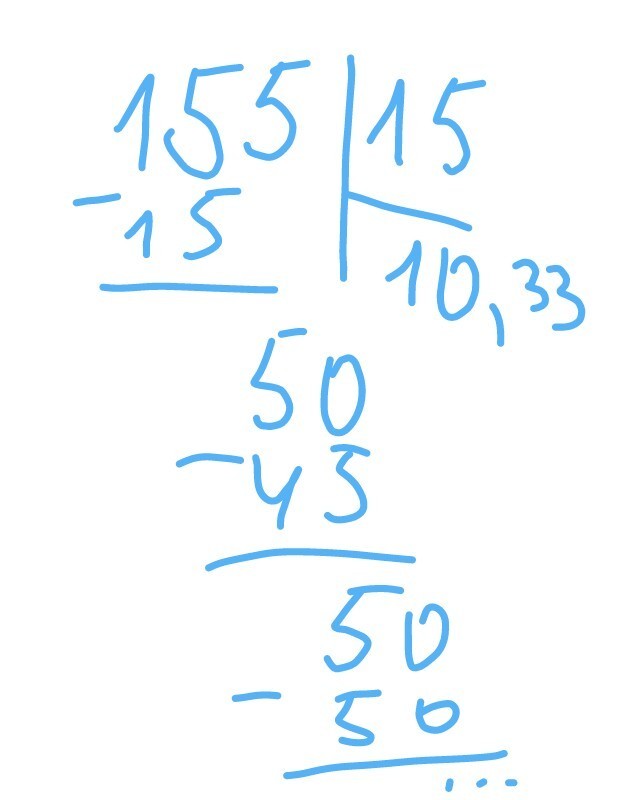 155 15
-15 10,33
50
-45
50
-50
...